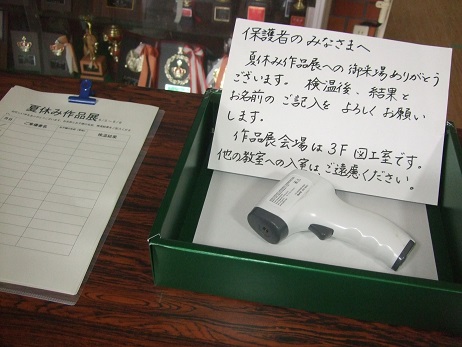 保護者のみなさまへ
夏休み作品展への御来場ありがとう
ございます。検温後、結果と
お名前のご記入をよろしくお願い
します。
作品展会場は3F図工室です。
他の教室への入室はご遠慮ください。
夏休み作品展